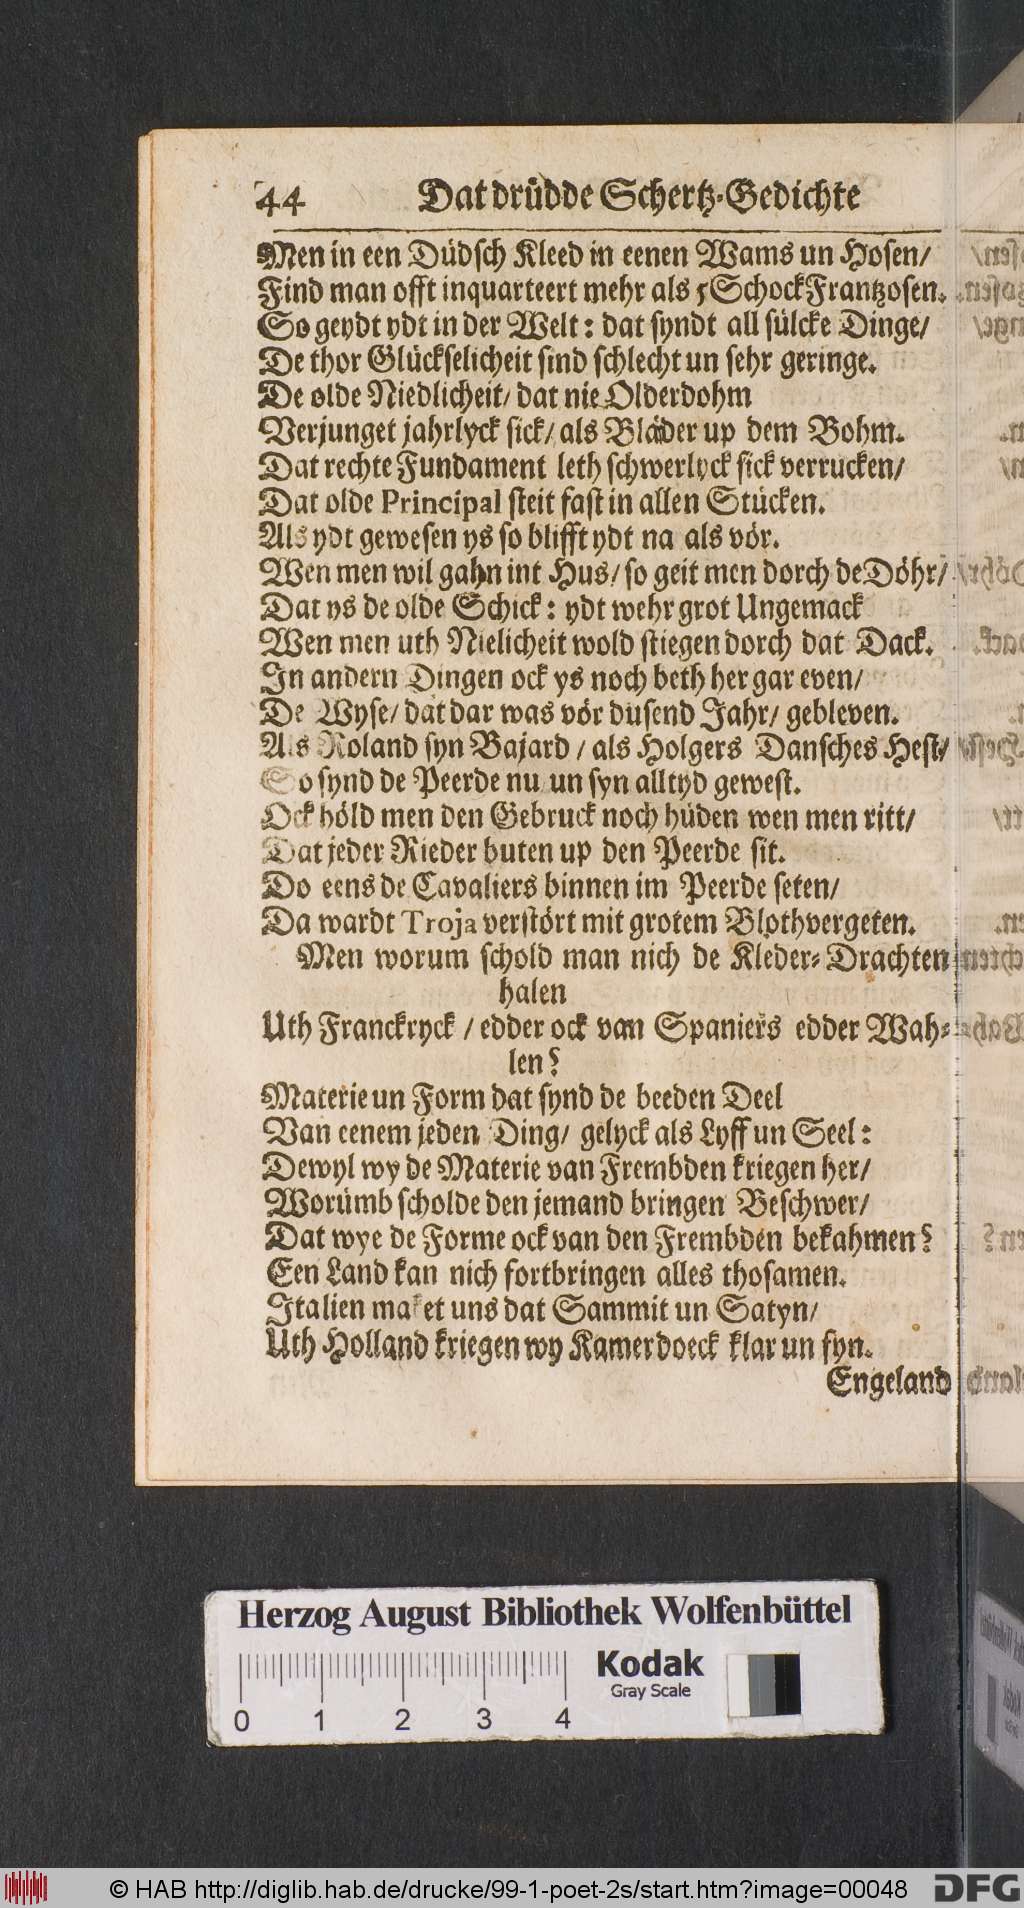 44 Dat drüdde Schertz-Gedichte
Men in een Düdsch Kleed in eenen Wams un Hosen/
Find man offt inquarteert mehr als 5 Schock Frantzosen.
So geydt ydt in der Welt: dat syndt all sülcke Dinge/
De thor Glückselicheit sind schlecht un sehr geringe.
De olde Niedlicheit/ dat nie Olderdohm
Verjunget jahrlyck sick/ als Bläder up dem Bohm.
Dat rechte Fundament leth schwerlyck sick verrucken/
Dat olde Principal steit fast in allen Stücken.
Als ydt gewesen ys so blifft ydt na als vör.
Wen men wil gahn int Hus/ so geit men dorch de Döhr/
Dat ys de olde Schick: ydt wehr grot Ungemack
Wen men uth Nielicheit wold stiegen dorch dat Dack.
In andern Dingen ock ys noch beth her gar even/
De Wyse/ dat dar was vör dusend Jahr/ gebleven.
Als Roland syn Bajard / als Holgers Dansches Hest/
So synd de Peerde nu un syn alltyd gewest.
Ock höld men den Gebruck noch hüden wen men ritt/
Dat jeder Rieder buten up den Peerde sit.
Do eens de Cavaliers binnen im Peerde seten/
Da wardt Troja verstört mit grotem Blothvergeten.
Men worum schold man nich de Kleder-Drachten
halen
Uth Franckryck / edder ock van Spaniers edder Wah-
len?
Materie un Form dat synd de beeden Deel
Van eenem jeden Ding/ gelyck als Lyff un Seel:
Dewyl wy de Materie van Frembden kriegen her/
Worümb scholde den jemand bringen Beschwer/
Dat wye de Forme ock van den Frembden bekahmen?
Een Land kan nich fortbringen alles thosamen.
Italien maket uns dat Sammit un Satyn/
Uth Holland kriegen wy Kamerdoeck klar un fyn.
Engeland
Herzog August Bibliothek Wolfenbüttel
0 1 2 3 4
Kodak
Gray Scale
© HAB http://diglib.hab.de/drucke/99-1-poet-2s/start.htm?image=00048
DFG